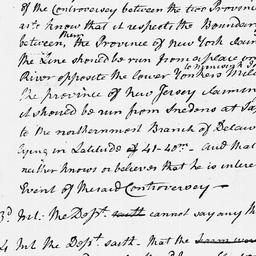 of the Controversy between the two Provin
know that it respects the Boundar
between them, the Province of New York
the Line should be run from a place
River opposite the lower Yonkers Mills
the province of New Jersey
it should be run from Snedens at
to the northernmost Branch of Delaw
lying in Latitude of 41-40m. And that
neither knows or believes that he is intere
Event of the said Controversy
3d Int. The Dept. saith cannot say any th
4 Int The Dept. saith. That the